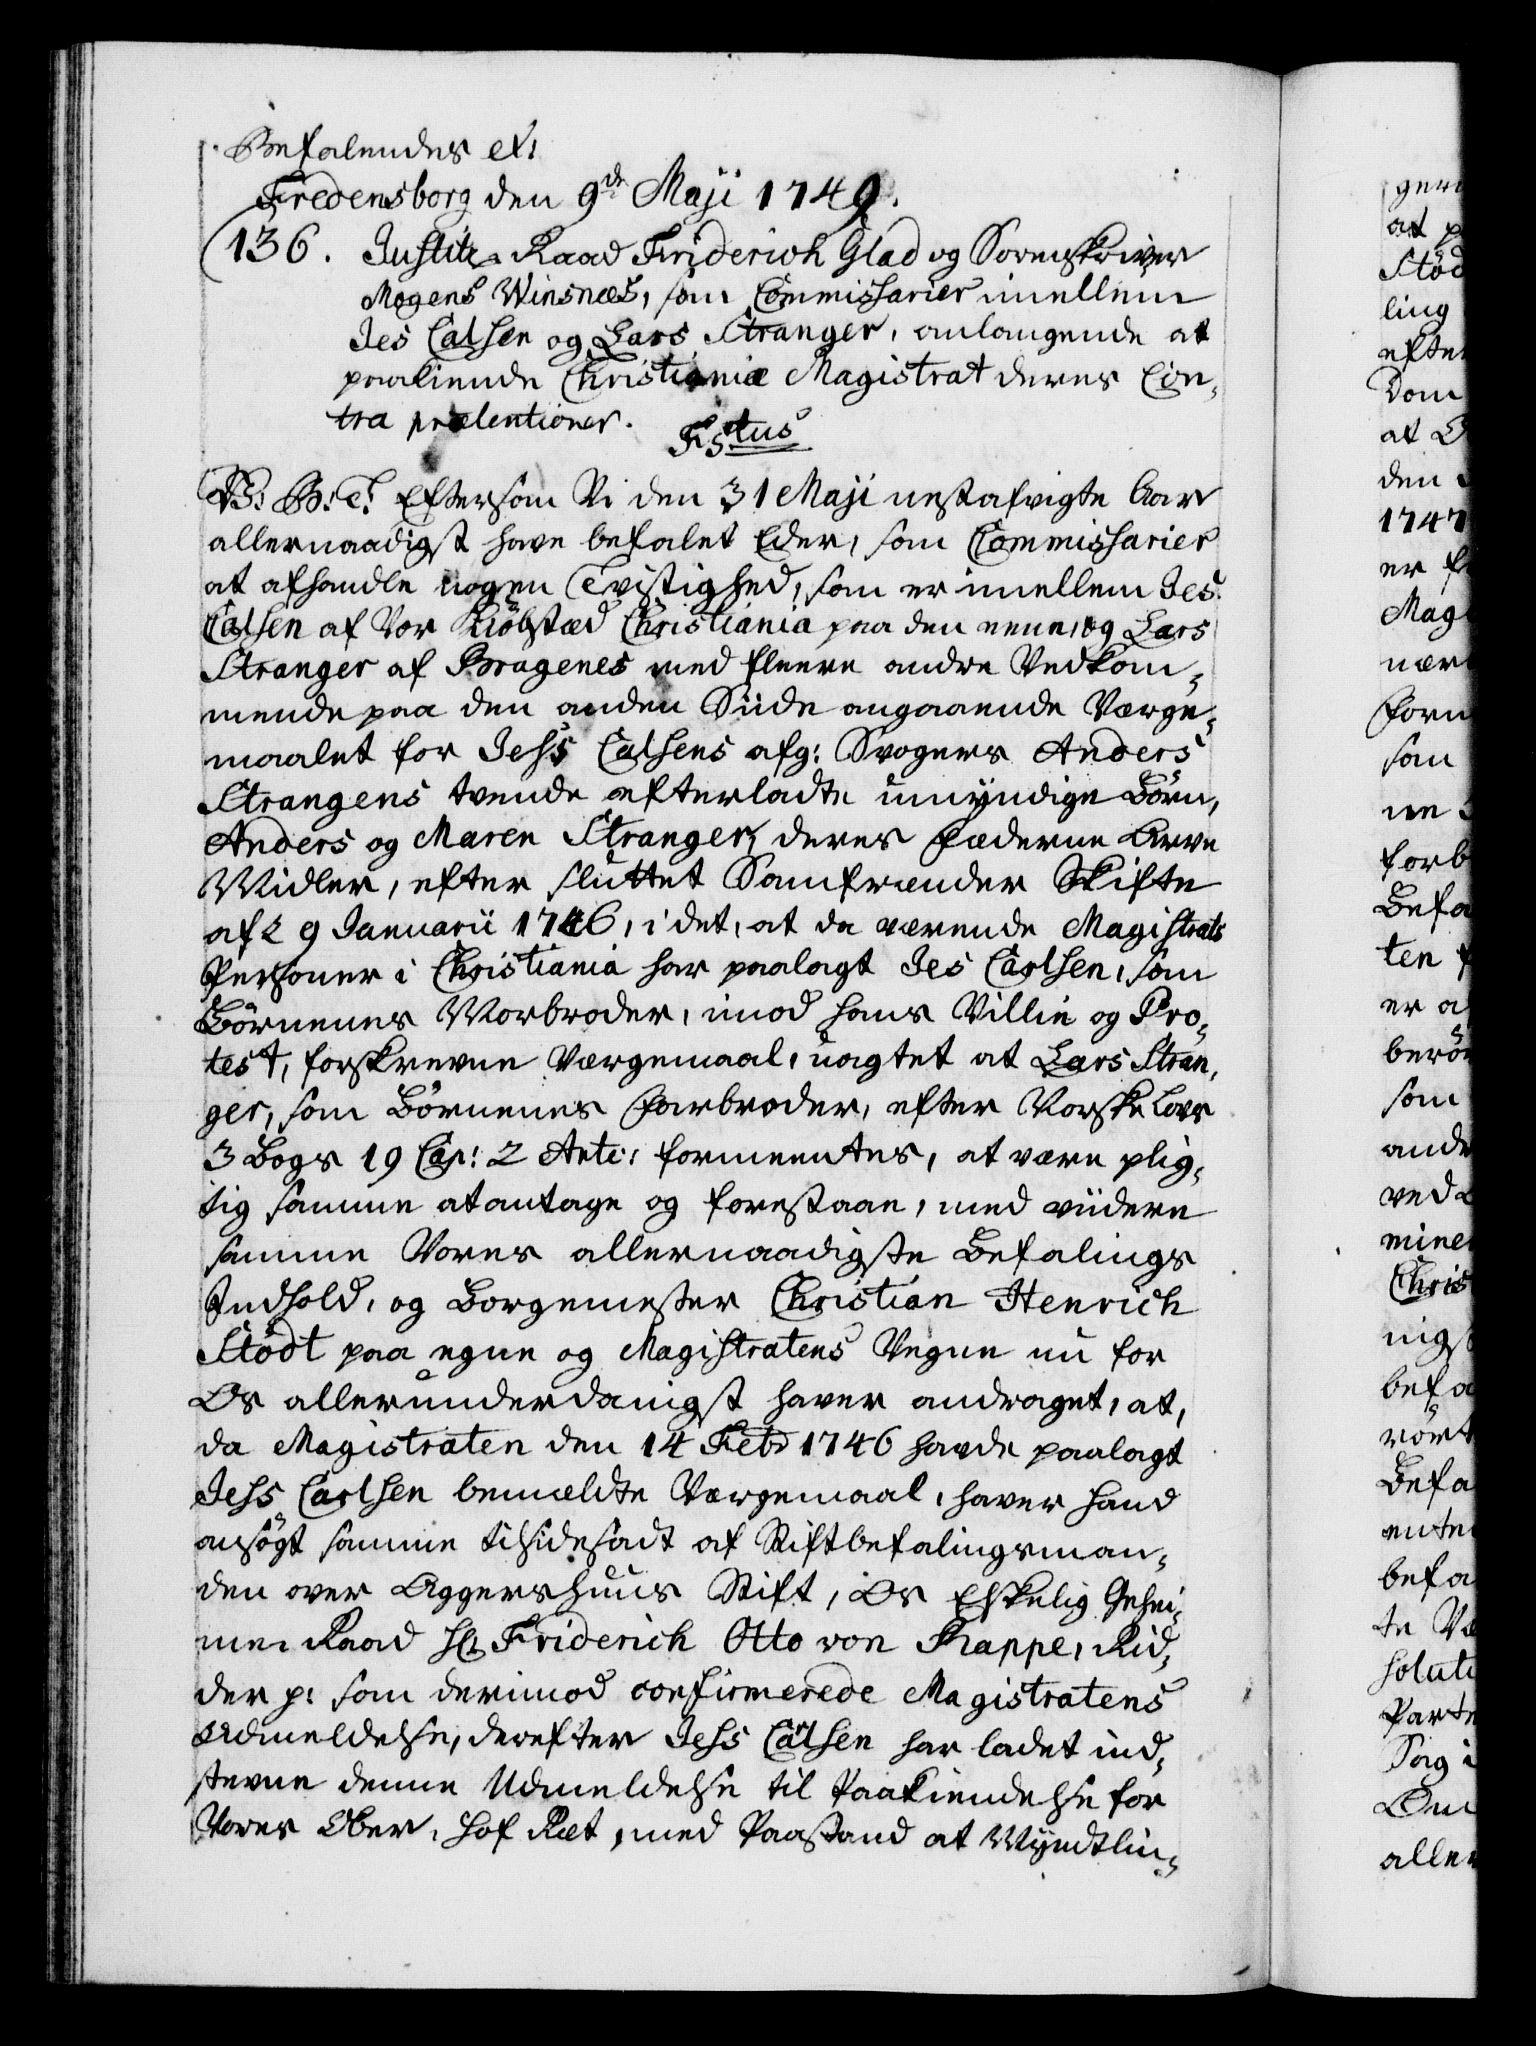 Befalendes etc:
Fredensborg den 9de Maji 1749.
136. Justitz-Raad Friderich Glad og Sorenskriver
Mogens Winsnæs, som Commissarier imellem
Jes Calsen og Lars Stranger, anlangende at
paakiende Christianiæ Magistrat deres Con-
tra prætentioner.
F5tus
V: G: T: Eftersom Vi den 31 Maji nestafvigte Aar
allernaadigst have befalet Eder, som Commissarier
at afhandle nogen Tvistighed, som er imellem Jes
Calsen af Vor Kiöbstæd Christiania paa den eene, og Lars
Stranger af Bragenes med fleere andre Vedkom-
mende paa den anden Siide angaaende Værge-
maalet for Jess Calsens afg: Svogers Anders
Strangens tvende efterladte umyndige Börn,
Anders og Maren Stranger, deres Fæderne Arve
Midler, efter sluttet Samfrænder Skifte
af 29 Januarii 1746, i det, at da værende Magistrats
Personer i Christiania har paalagt Jes Carlsen, som
Börnenes Morbroder, imod hans Villie og Pro-
test, forskrevne Værgemaal, uagtet at Lars Stran-
ger, som Börnenes Farbroder, efter Norske Lovs
3 Bogs 19 Cap: 2 Artic: formeentes, at være plig-
tig samme at antage og forestaae, med viidere
samme Vores allernaadigste Befalings
Indhold, og Borgemester Christian Henrich
Stödt paa egne og Magistratens Vegne nu for
Os allerunderdanigst haver andraget, at,
da Magistraten den 14 Febr 1746 havde paalagt
Jess Carlsen bemældte Værgemaal, haver hand
ansögt samme tilsidesadt af Stiftbefalingsman-
den over Aggershuus Stift, Os Elskelig Gehei-
me Raad Hr Friderich Otto von Rappe, Rid-
der p: som derimod confirmerede Magistratens
Udmeldelse, derefter Jess Carlsen har ladet ind-
stevne denne Udmeldelse til Paakiendelse for
Vores Ober-Hof Ret, med Paastand at Myndtlin-